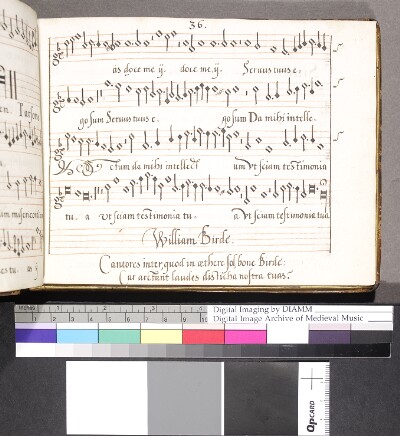 36.
as doce me ij. doce me, ij. Seruus tuus e.
go sum Seruus tuus e. go sum Da mihi intelle.
ctum da mihi intellect um Vt sciam testimonia
tu. a vt sciam testimonia tu. a Vt sciam testimonia tua
William Birde.
Cantores inter, quod in æthere sol, bone Birde:
Cur arctant laudes disticha nostra tuas?
en. Tu
s tu. as
Digital Imaging by DIAMM
Digital Image Archive of Medieval Music
QPCARD